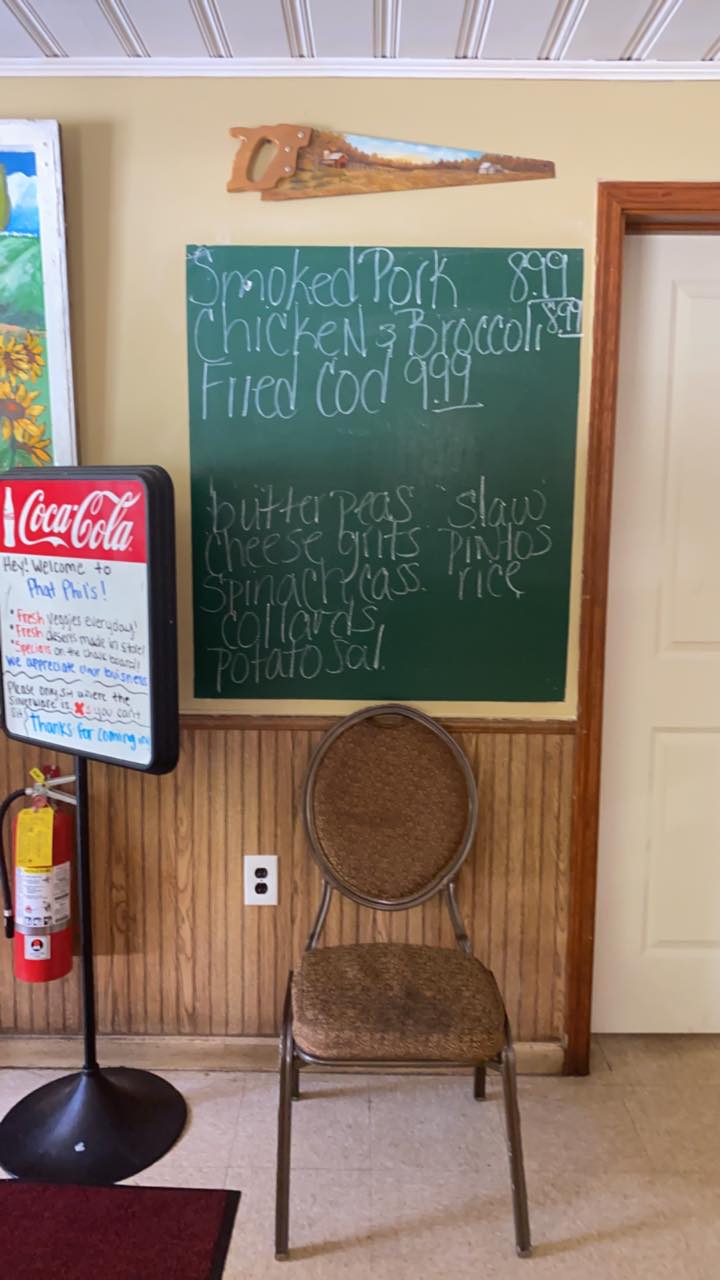 Smoked Pork 8.99
Chicken & Broccoli 8.99
Fried Cod 9.99
butter peas slaw
cheese grits pintos
spinach cass. rice
collards
potato sal.
Coca-Cola
Hey! Welcome to
Phat Phil's!
*Fresh veggies everyday!
*Fresh deserts made in store!
*Specials on the chalk board!
We appreciate your buisness
Please only sit where the
silverware is. X=you can't
sit! Thanks for coming in!